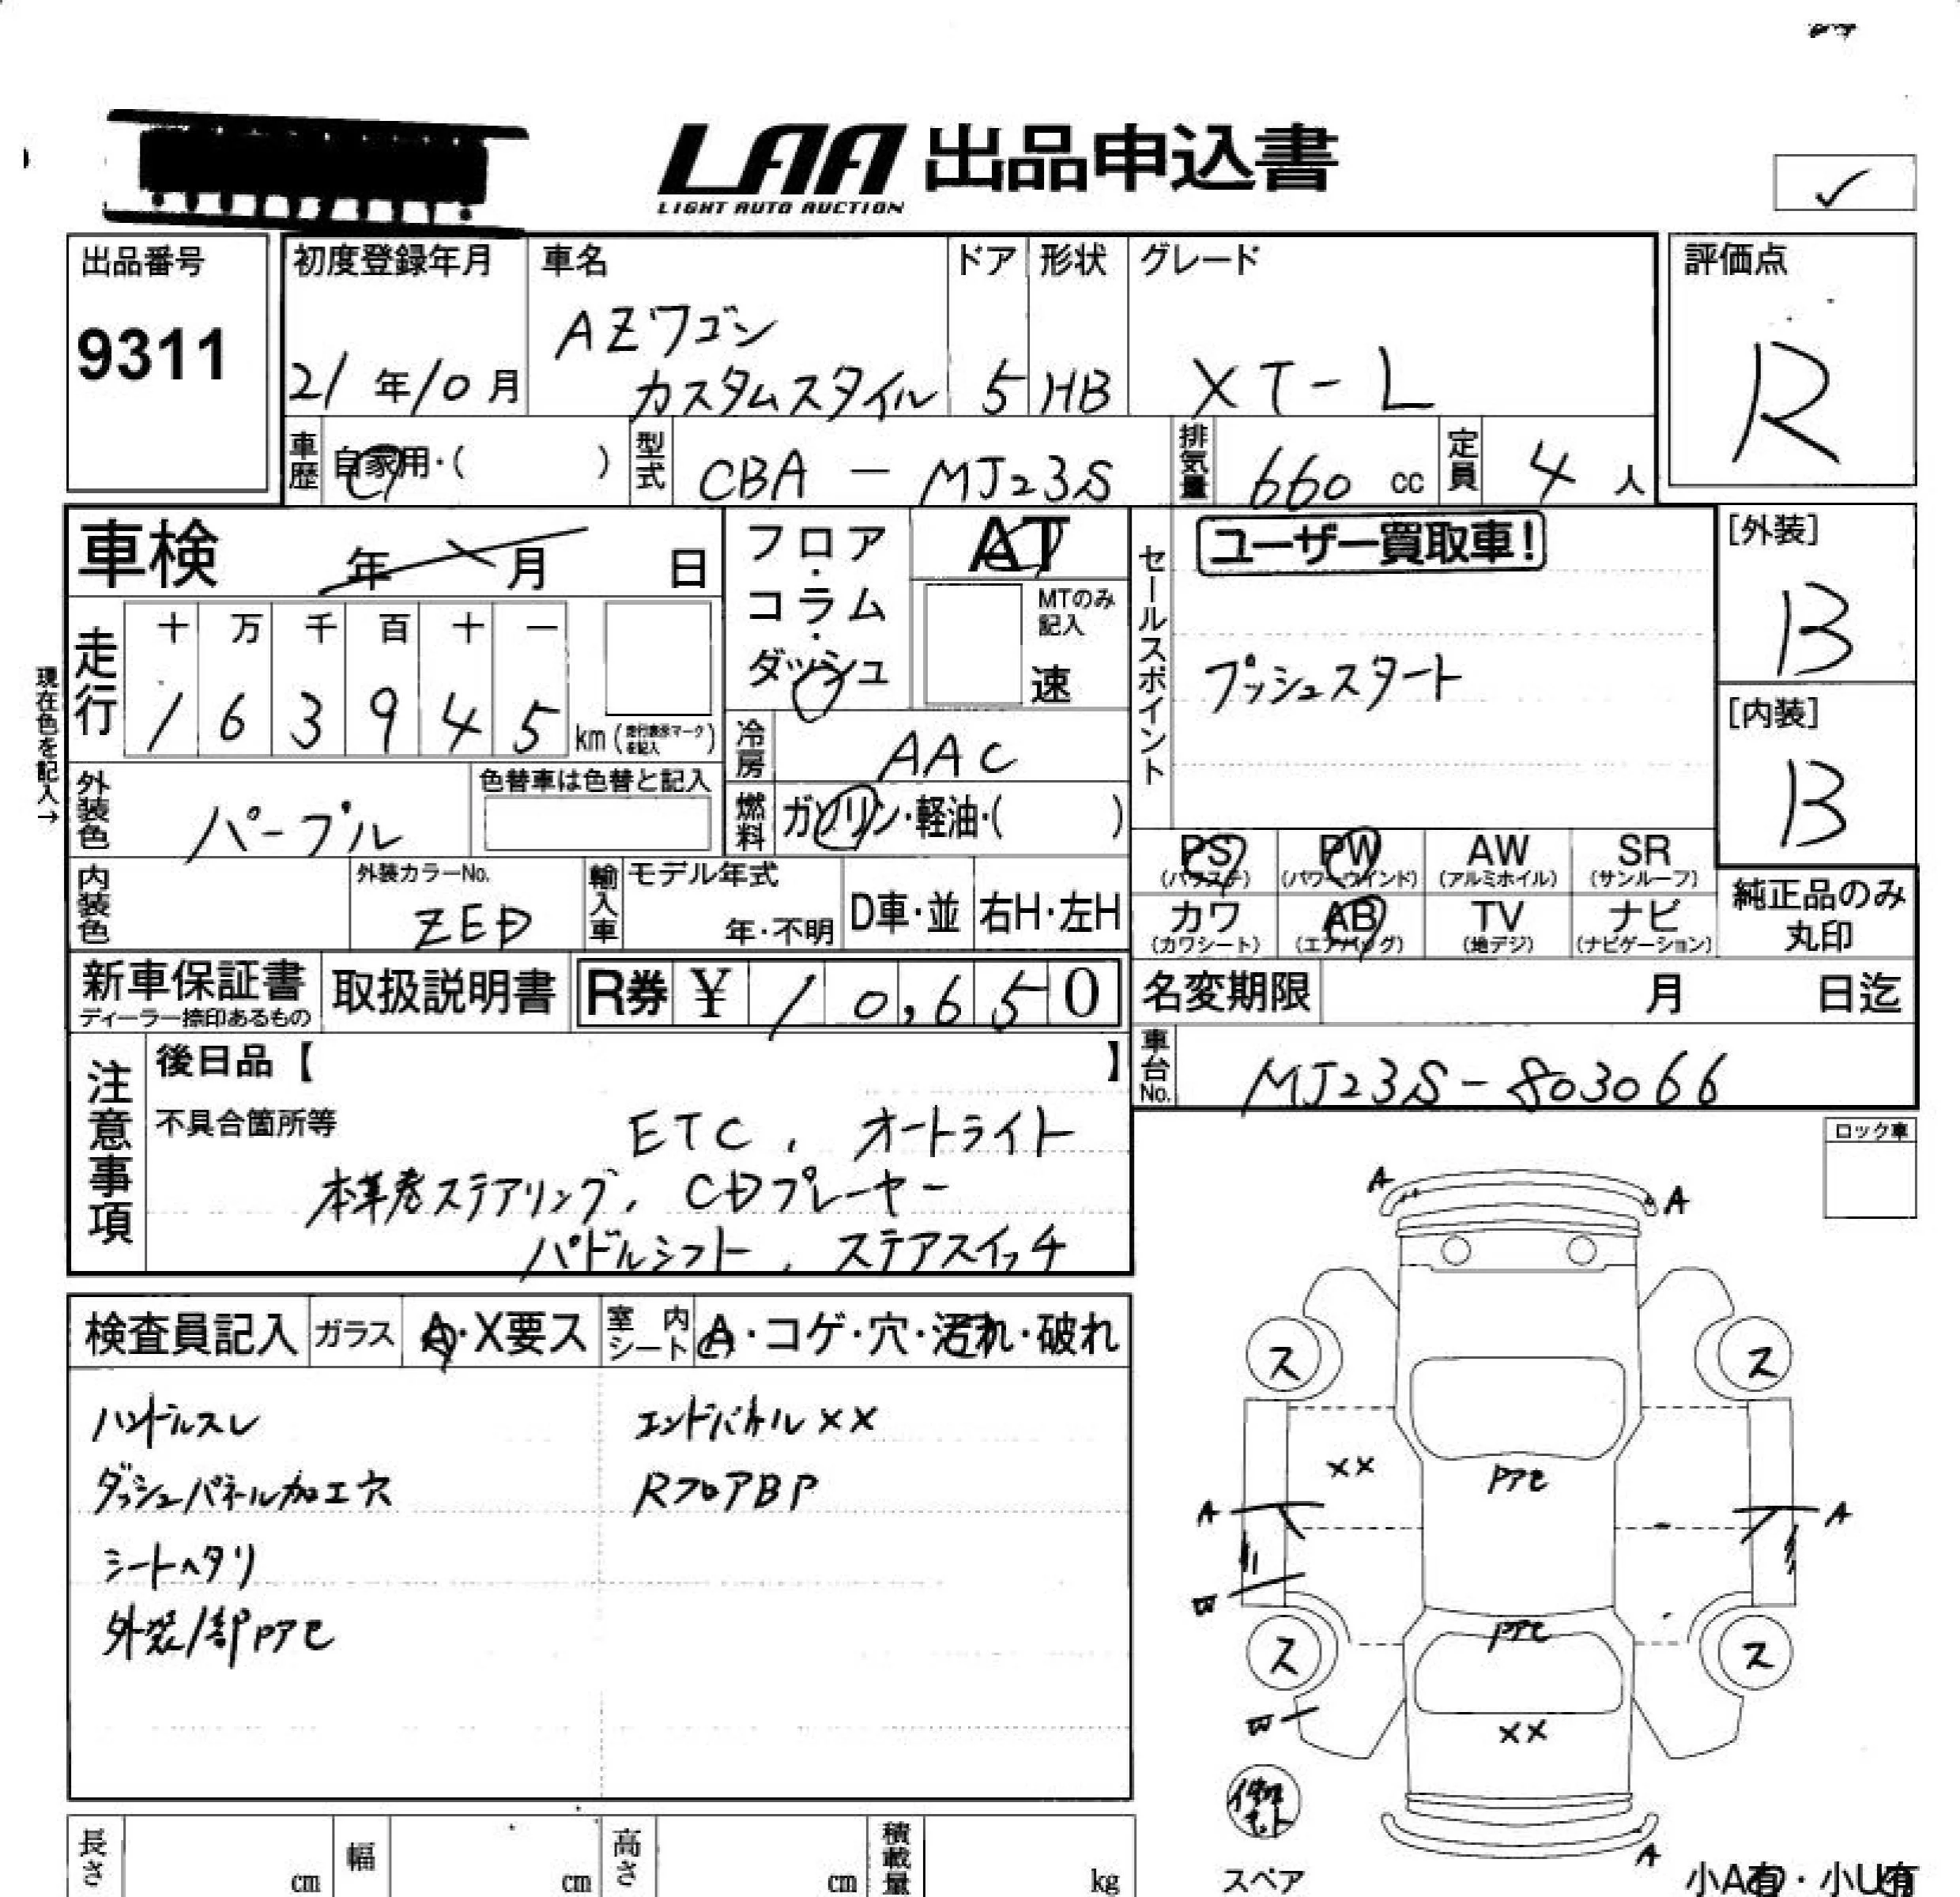 LAA 出品申込書
LIGHT AUTO AUCTION
✓
出品番号
9311
初度登録年月
21年10月
車名
AZワゴン
カスタムスタイル
ドア
5
形状
HB
グレード
XT-L
評価点
R
車歴
自家用・( )
型式
CBA - MJ23S
排気量
660 cc
定員
4 人
車検 年 月 日
フロア・コラム・ダッシュ
AT
MTのみ記入
速
セールスポイント
ユーザー買取車!
プッシュスタート
[外装]
B
[内装]
B
現在色を記入→
走行
十 万 千 百 十 一
1 6 3 9 4 5 km (走行表示マークを記入)
冷房
AAC
外装色
パープル
色替車は色替と記入
燃料
ガソリン・軽油・( )
内装色
外装カラーNo.
ZED
輸入車
モデル年式
年・不明
D車・並
右H・左H
PS (パワステ)
PW (パワーウインド)
AW (アルミホイル)
SR (サンルーフ)
カワ (カワシート)
AB (エアバッグ)
TV (地デジ)
ナビ (ナビゲーション)
純正品のみ
丸印
新車保証書
ディーラー捺印あるもの
取扱説明書
R券 ¥ 10,650
名変期限 月 日迄
車台No.
MJ23S-803066
注意事項
後日品【 】
不具合箇所等
ETC、オートライト
本革巻ステアリング、CDプレーヤー
パドルシフト、ステアスイッチ
ロック車
検査員記入
ガラス A・X要ス
室内シート A・コゲ・穴・汚れ・破れ
ハンドルスレ
ダッシュパネル加工穴
シートヘタリ
外装1部Pアセ
エンドパネルXX
RフロアBP
A
A
ス
ス
XX
Pアセ
A
A
W
Pアセ
ス
ス
W
XX
A
スペア
小A有・小U有
長さ cm
幅 cm
高さ cm
積載量 kg